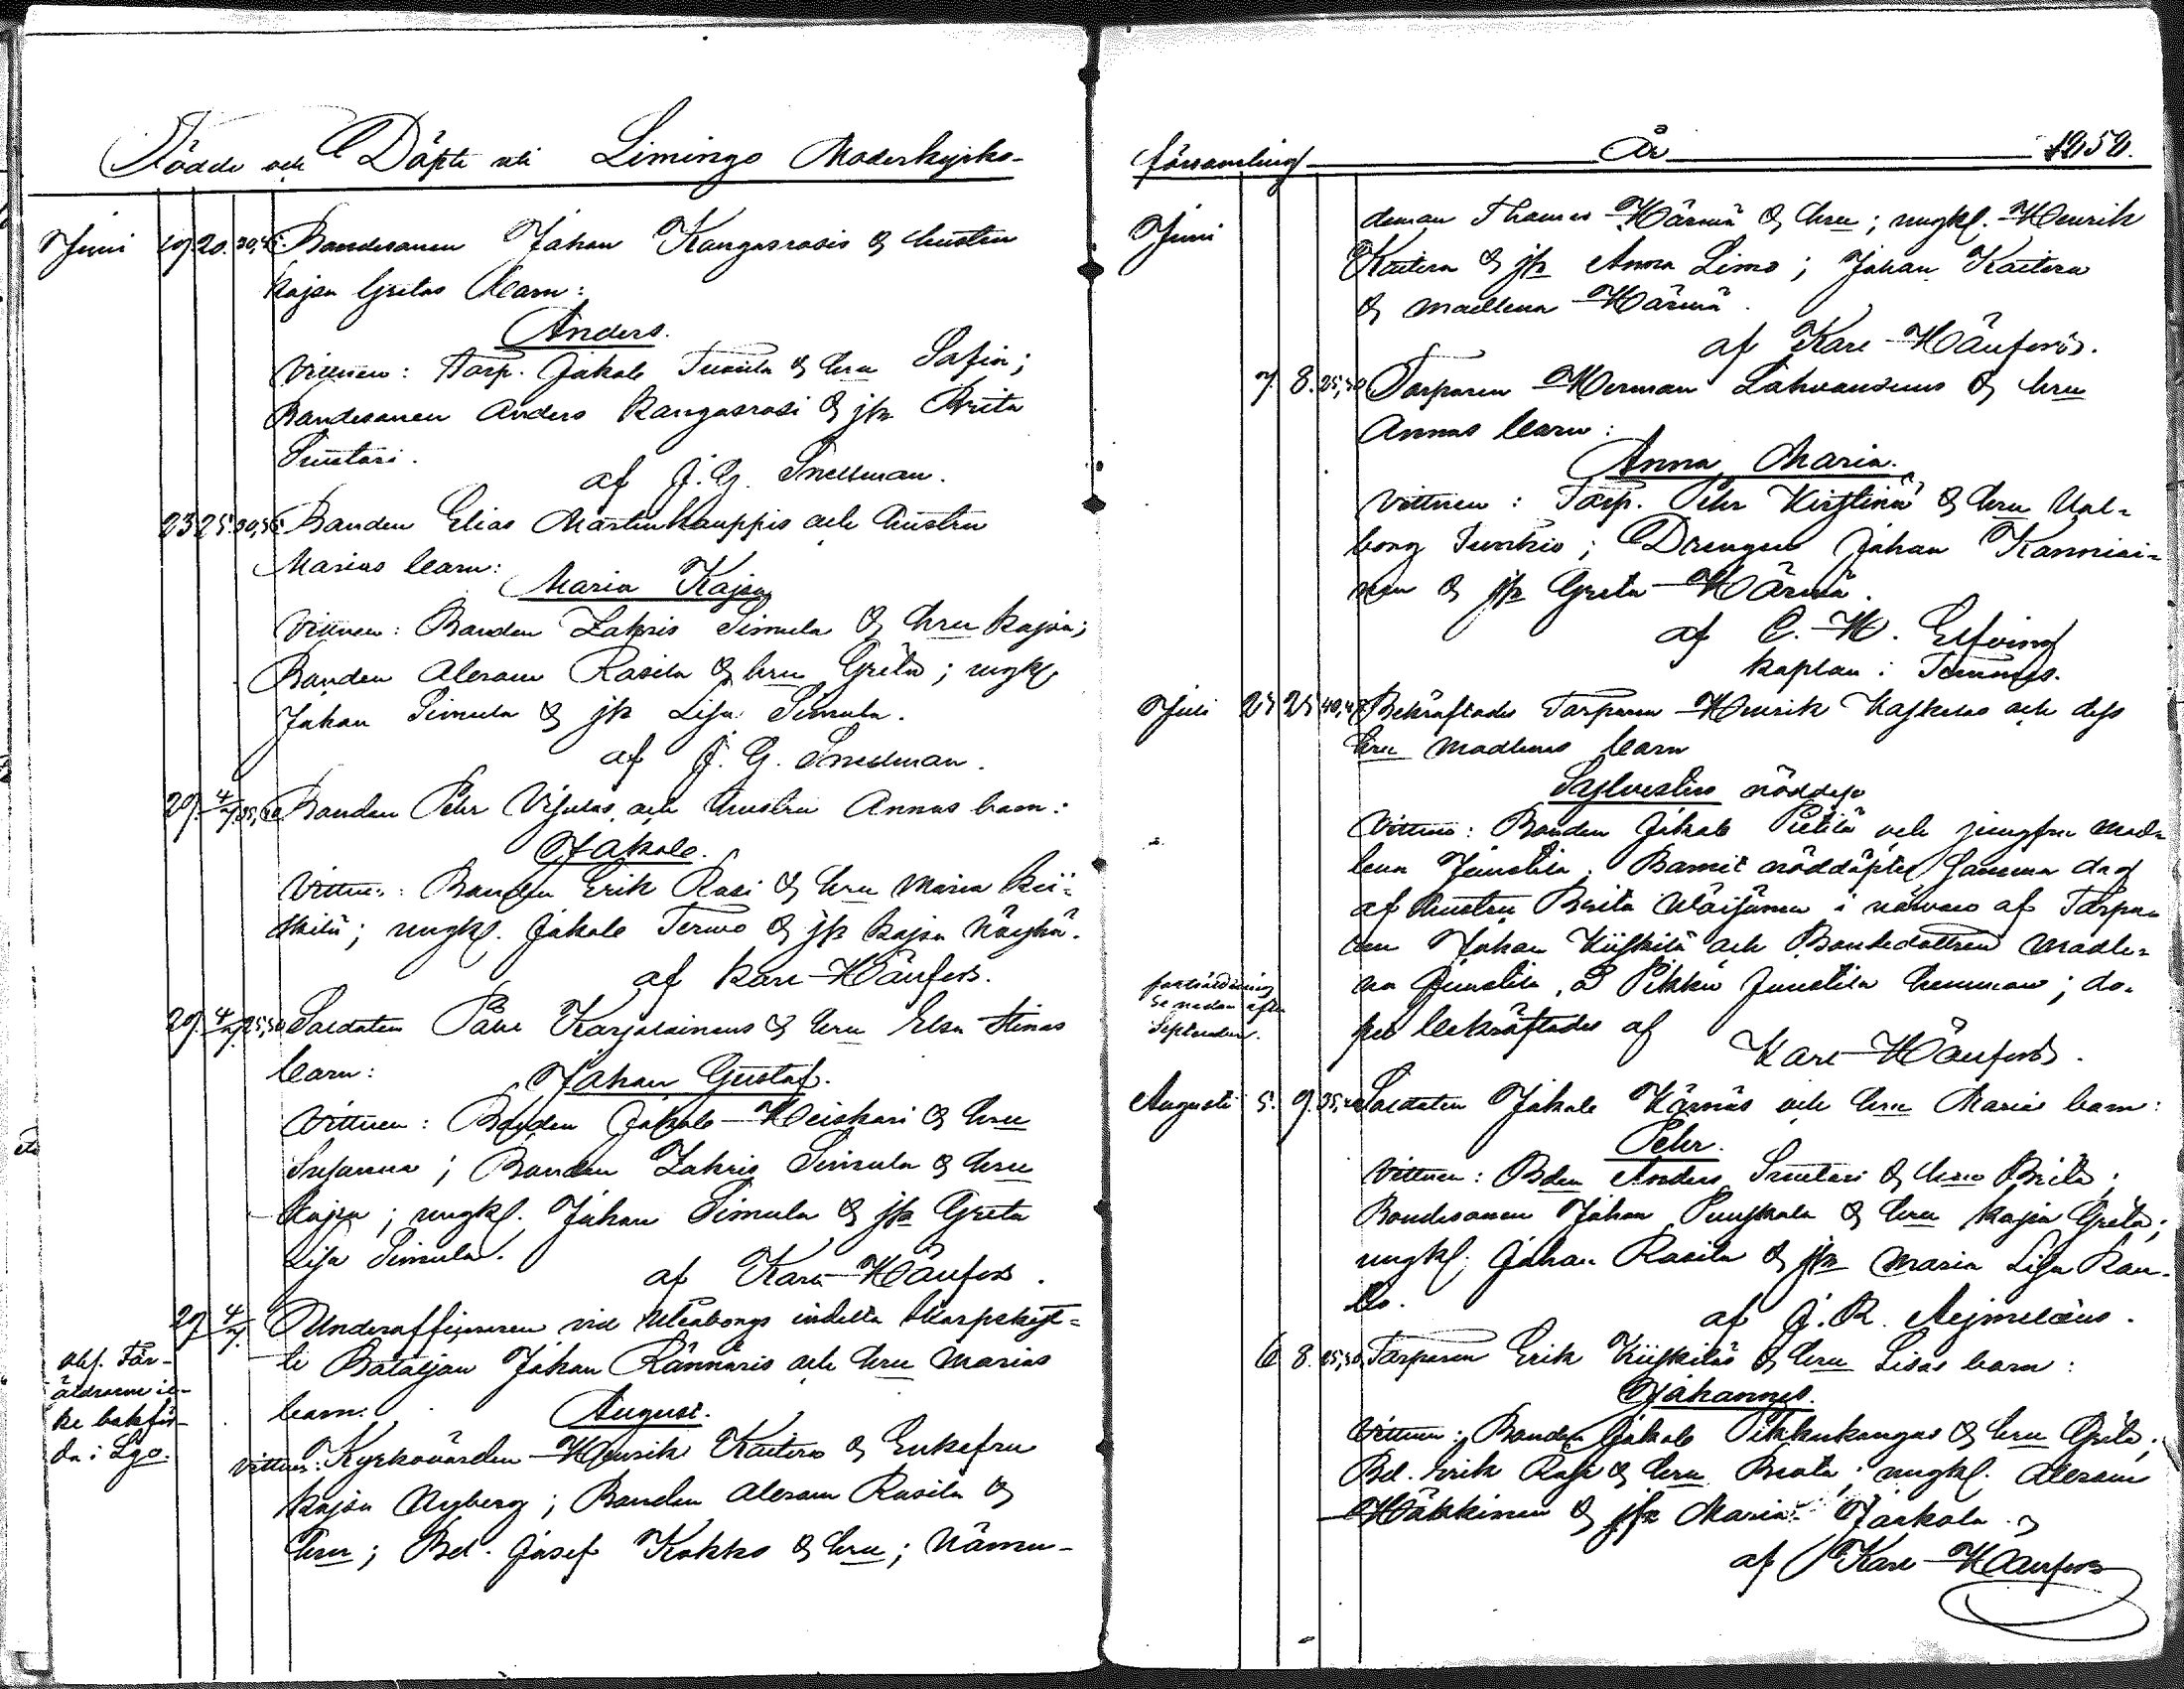 Födde och Döpte uti Limingo Moderkyrko-
Juni 19. 20. 30,35. Bondesonen Johan Kangasrasis & hustru
Kajsa Gretas barn:
Anders.
Vittnen: Torp. Jakob Tuuila & hru Sofia;
Bondesonen Anders Kangasrasi & jfr Brita
Suutari.
af J. G. Snellman.
23 25. 30,35. Bonden Elias Martinkauppis och hustru
Marias barn:
Maria Kajsa
Vittnen: Bonden Zakris Simula & hru Kajsa;
Bonden Abram Rasila & hru Greta; ungkl
Johan Simula & jfr Lisa Simula.
af J. G. Snellman.
29. 4/7. 35,40 Bonden Pehr Vijulas och hustru Annas barn:
Jakob.
Vittn: Bonden Erik Rasi & hru Maria Kii-
skilä; ungkl. Jakob Terwo & jfr Kajsa Näyhä.
af Karl Hänfors.
29. 4/7. 25,30 Soldaten Påhl Karjalainens & hru Elsa Stinas
barn:
Johan Gustaf.
Vittnen: Bonden Jakob Heiskari & hru
Susanna; Bonden Zakris Simula & hru
Kajsa; ungkl. Johan Simula & jfr Greta
Lisa Simula.
af Karl Hänfors.
29 4/7. Underofficeren vid Uleåborgs indelta Skarpskyt-
te Bataljon Johan Rännäris och hru Marias
barn:
August.
obs. För-
äldrarne ic-
ke bokför-
da i Lgo.
Vittnen: Kyrkovärden Henrik Kaitera & Enkefru
Kajsa Nyberg; Bonden Abram Rasila &
hru; Bd. Josef Kokko & hru; Nämn-
församling År 1852.
Juni
deman Thomas Härmä & hru; ungkl. Henrik
Kaitera & jfr Anna Limo; Johan Kaitera
& Madlena Härmä.
af Karl Hänfors.
7 8. 25,30 Torparen Herman Lahvansuus & hru
Annas barn:
Anna Maria.
Vittnen: Torp. Pehr Kirstinä & hru Wal-
borg Junkis; Drengen Johan Kanniai-
nen & jfr Greta Härmä.
af C. H. Elfving
kaplan i Temmes.
Juli 25 25 40,45 Bekräftades Torparen Henrik Kaskelas och dess
hru Madlenas barn
Sylvester nöddop
Vittnen: Bonden Jakob Pietilä och jungfru Mad-
lena Junttila. Barnet nöddöptes samma dag
af hustru Brita Wäisänen i närwaro af Torpa-
ren Johan Kiiskilä och Bondedottren Madle-
na Junttila, å Pikku Junttila hemman; do-
pet bekräftades af
Karl Hänfors.
fortsättning
se nedan efter
September.
Augusti 5. 9. 35,40 Soldaten Jakob Kärnäs och hru Marias barn:
Pehr.
Vittnen: Bden Anders Suutari & hru Brita;
Bondesonen Johan Puuskala & hru Kajsa Greta;
ungkl. Johan Rasila & jfr Maria Lisa Kau-
lio.
af J. R. Aejmelæus.
6 8. 25,30 Torparen Erik Kiiskiläs & hru Lisas barn:
Johannes.
Vittnen: Bonden Jakob Pikkukangas & hru Greta;
Bd. Erik Rasi & hru Beata; ungkl. Abram
Häkkinen & jfr Maria Jaakola.
af Karl Hänfors